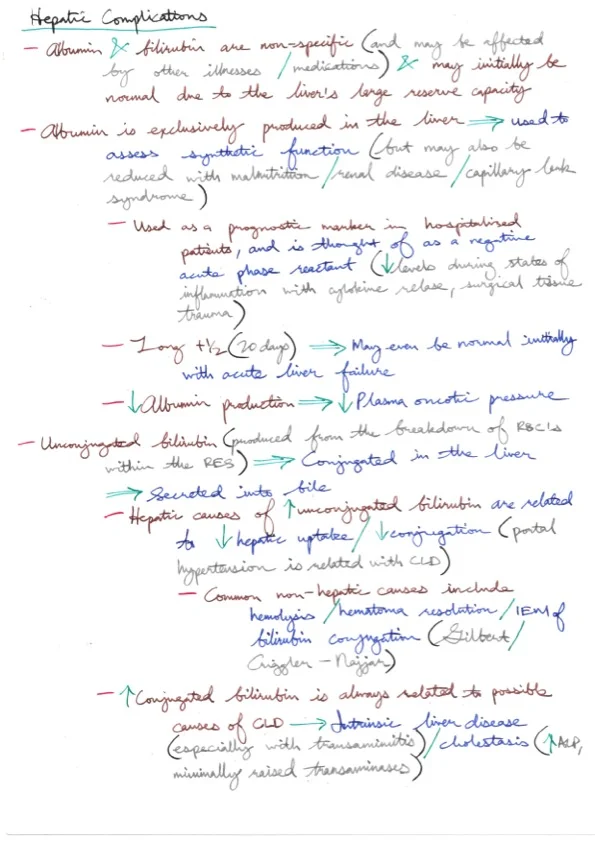 Hepatic Complications
— Albumin & bilirubin are non-specific (and may be affected
by other illnesses / medications) & may initially be
normal due to the liver's large reserve capacity
— Albumin is exclusively produced in the liver ⇒ used to
assess synthetic function (but may also be
reduced with malnutrition / renal disease / capillary leak
syndrome)
— Used as a prognostic marker in hospitalised
patients, and is thought of as a negative
acute phase reactant (↓ levels during states of
inflammation with cytokine relase, surgical tissue
trauma)
— Long t1/2 (20 days) ⇒ May even be normal initially
with acute liver failure
— ↓ Albumin production ⇒ ↓ Plasma oncotic pressure
— Unconjugated bilirubin (produced from the breakdown of RBCs
within the RES) ⇒ Conjugated in the liver
⇒ Secreted into bile
— Hepatic causes of ↑ unconjugated bilirubin are related
to ↓ hepatic uptake / ↓ conjugation (portal
hypertension is related with CLD)
— Common non-hepatic causes include
hemolysis / hematoma resolution / IEM of
bilirubin conjugation (Gilbert /
Criggler – Najjar)
— ↑ Conjugated bilirubin is always related to possible
causes of CLD → Intrinsic liver disease
(especially with transaminitis) / cholestasis (↑ ALP,
minimally raised transaminases)